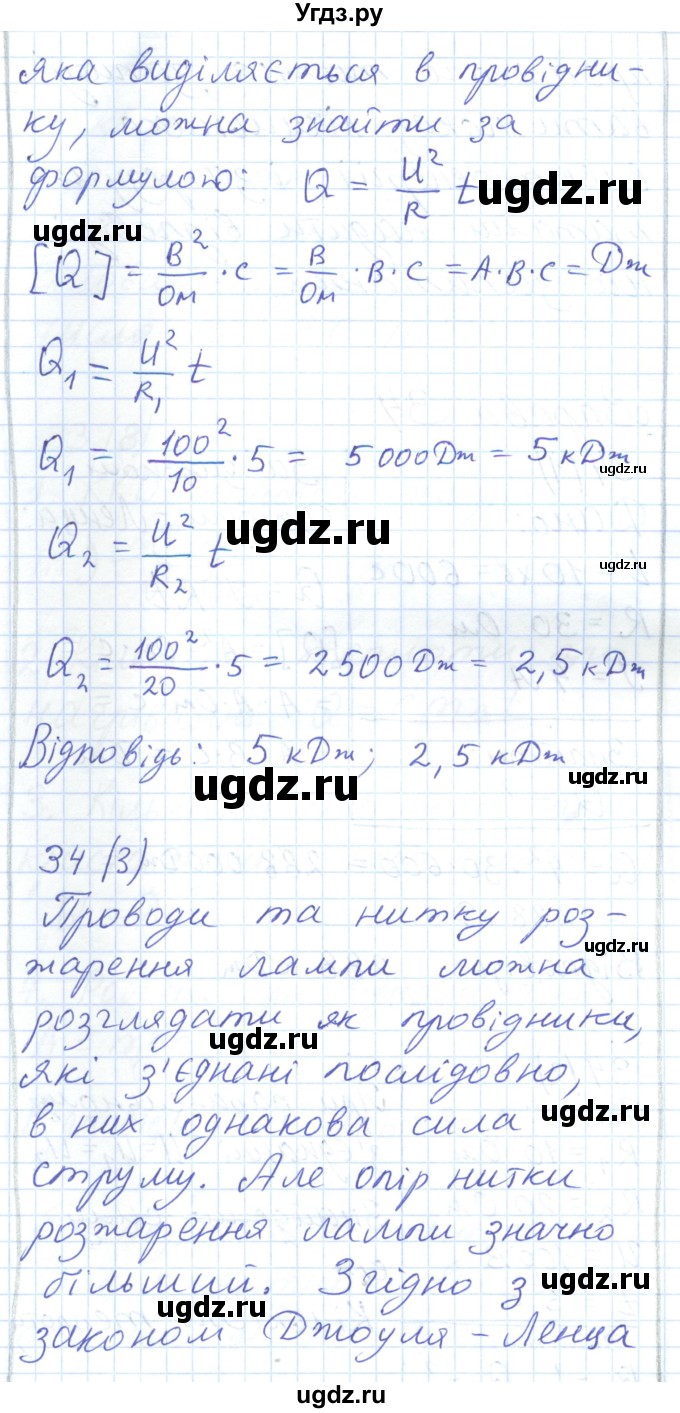 Угдз.ру
яка виділяється в провідни-
ку, можна знайти за
формулою: Q = U²/R t
ugdz.ru
ugdz.ru
[Q] = В²/Ом · с = В/Ом · В · с = А·В·с = Дж
Q₁ = U²/R₁ t
Q₁ = 100²/10 · 5 = 5000Дж = 5 кДж
ugdz.ru
Q₂ = U²/R₂ t
ugdz.ru
ugdz.ru
Q₂ = 100²/20 · 5 = 2500Дж = 2,5 кДж
Відповідь: 5 кДж; 2,5 кДж
ugdz.ru
ugdz.ru
34 (3)
Проводи та нитку роз-
ugdz.ru
жарення лампи можна
розглядати як провідники,
ugdz.ru
які з'єднані послідовно,
в них однакова сила
ugdz.ru
струму. Але опір нитки
розжарення лампи значно
більший. Згідно з
ugdz.ru
ugdz.ru
законом Джоуля - Ленца
ugdz.ru